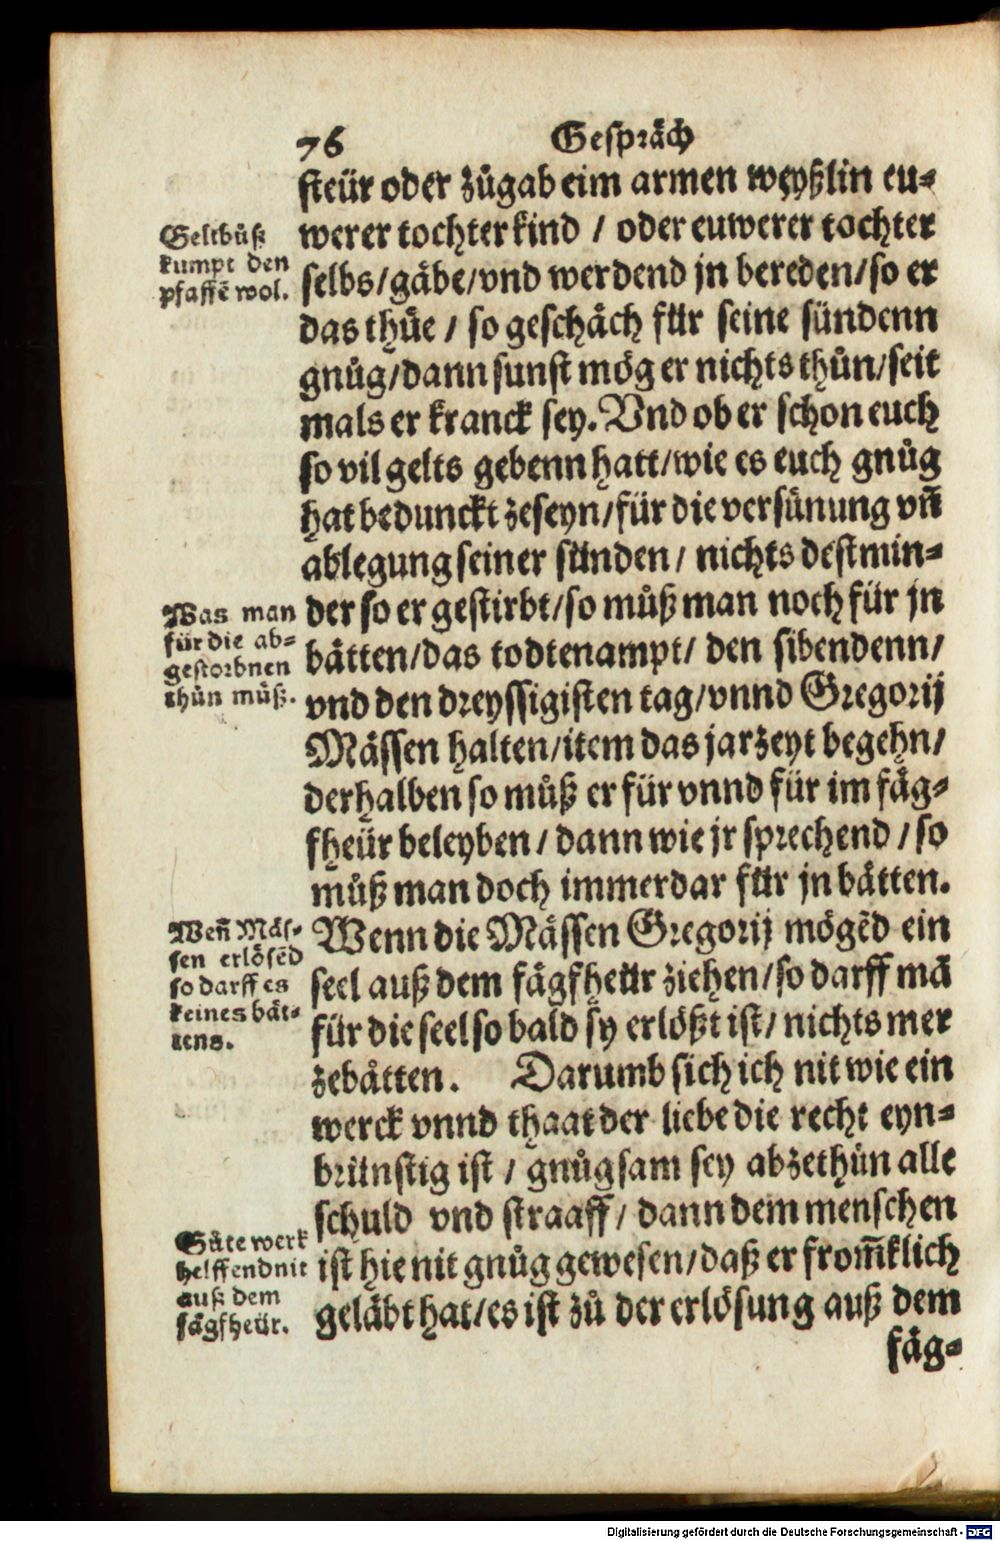 76 Gespräch
steür oder zůgab eim armen weyßlin eu-
werer tochter kind / oder euwerer tochter
selbs/gäbe/vnd werdend jn bereden/so er
das thüe / so geschäch für seine sündenn
gnůg/dann sunst mög er nichts thůn/seit
mals er kranck sey. Vnd ob er schon euch
so vil gelts gebenn hatt/wie es euch gnůg
hat bedunckt zeseyn/für die versünung vñ
ablegung seiner sünden / nichts destmin-
der so er gestirbt/so můß man noch für jn
bätten/das todtenampt/ den sibendenn/
vnd den dreyssigisten tag/vnnd Gregorij
Mässen halten/item das jarzeyt begehn/
derhalben so můß er für vnnd für im fäg-
fheür beleyben / dann wie jr sprechend / so
můß man doch immerdar für jn bätten.
Wenn die Mässen Gregorij mögēd ein
seel auß dem fägfheür ziehen/so darff mā
für die seel so bald sy erlößt ist/ nichts mer
zebätten. Darumb sich ich nit wie ein
werck vnnd thaat der liebe die recht eyn-
brünstig ist / gnůgsam sey abzethůn alle
schuld vnd straaff / dann dem menschen
ist hie nit gnůg gewesen/daß er from̄klich
geläbt hat/es ist zů der erlösung auß dem
fäg-
Geltbůß
kumpt den
pfaffē wol.
Was man
für die ab-
gestorbnen
thůn můß.
Weñ Mäs-
sen erlösēd
so darff es
keines bät-
tens.
Gůte werk
helffend nit
auß dem
fägfheür.
Digitalisierung gefördert durch die Deutsche Forschungsgemeinschaft - DFG